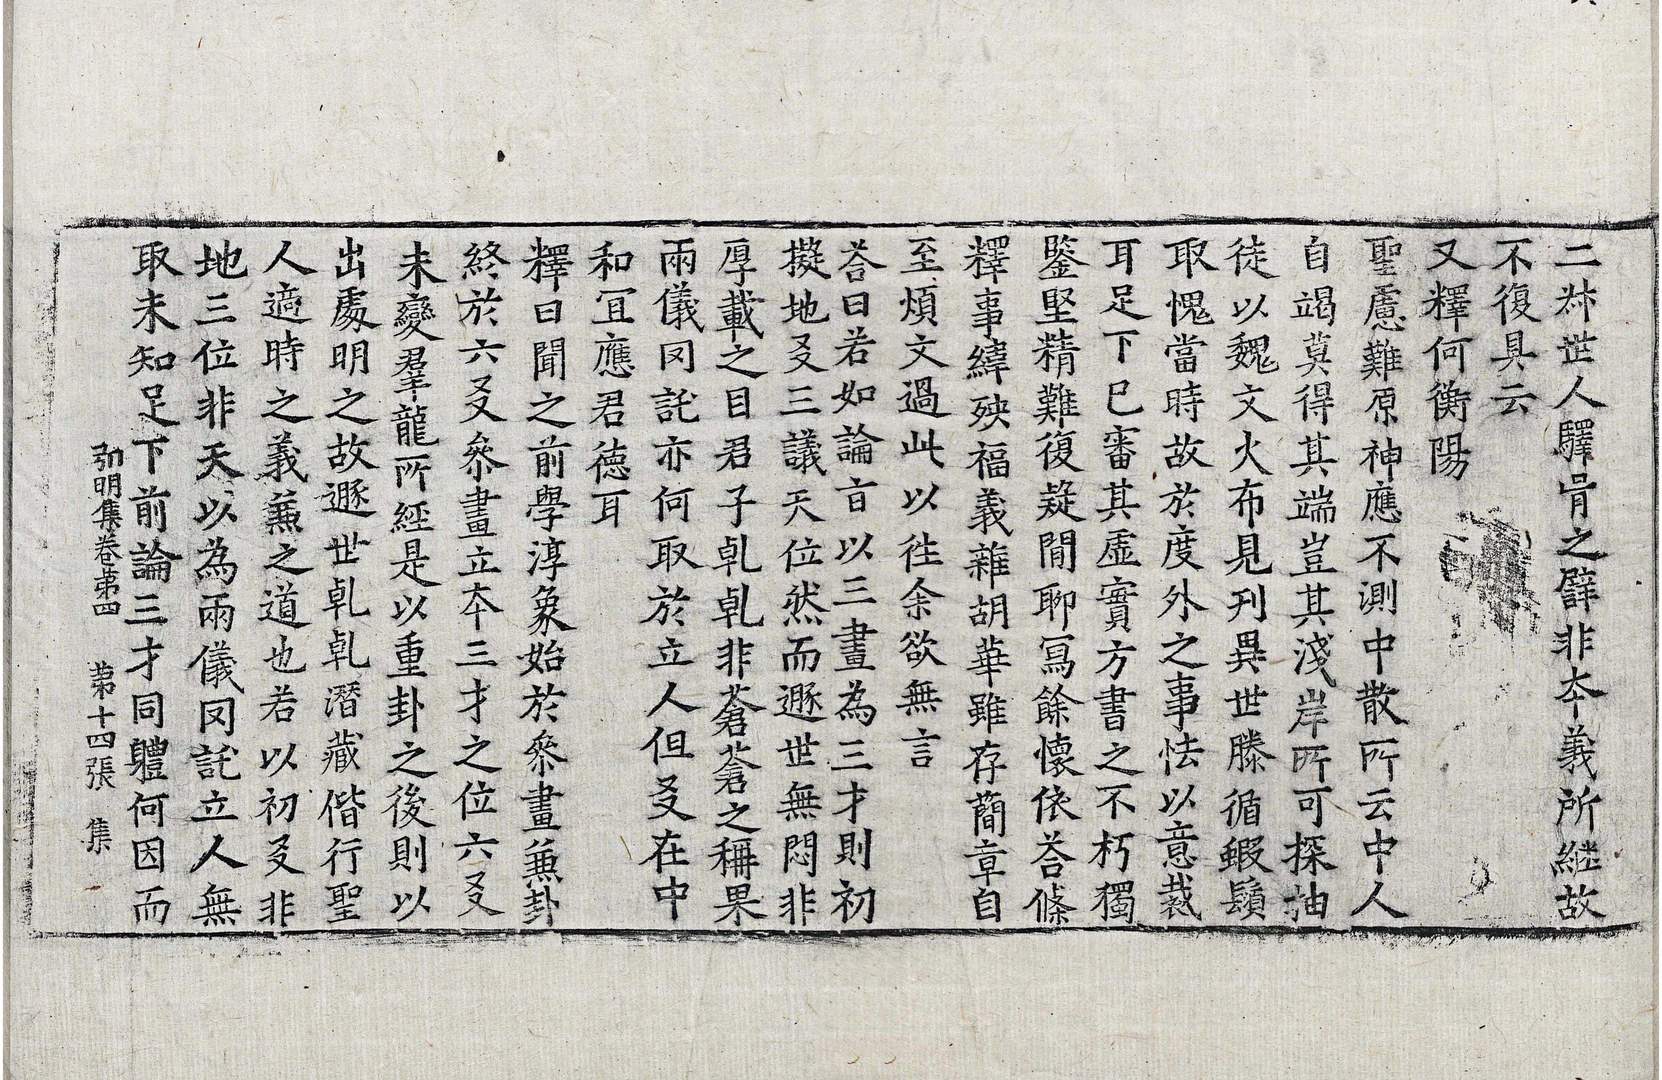 二叅世人驛肯之譬非夲義所継故
不復具云
又釋何衡陽
聖慮難原神應不測中散所云中人
自竭莫得其端豈其淺岸所可探抽
徒以魏文火布見刋異世滕循蝦鬚
取愧當時故於度外之事怯以意裁
耳足下巳審其虛實方書之不朽獨
鑒堅精難復疑閒聊冩餘懷依荅條
釋事緯殃福義雜胡華雖存蕳章自
至煩文過此以徃余欲無言
荅曰若如論㫖以三畫為三才則初
擬地爻三議天位然而遯世無悶非
厚載之目君子乹乹非蒼蒼之稱果
兩儀罔託亦何取於立人但爻在中
和冝應君德耳
釋曰聞之前學淳象始於叅畫兼卦
終於六爻叅畫立夲三才之位六爻
未變羣龍所經是以重卦之後則以
出處明之故遯世乹乹潛藏偕行聖
人適時之義兼之道也若以初爻非
地三位非天以為兩儀罔託立人無
取未知足下前論三才同體何因而
弘明集卷苐四　苐十四張　集